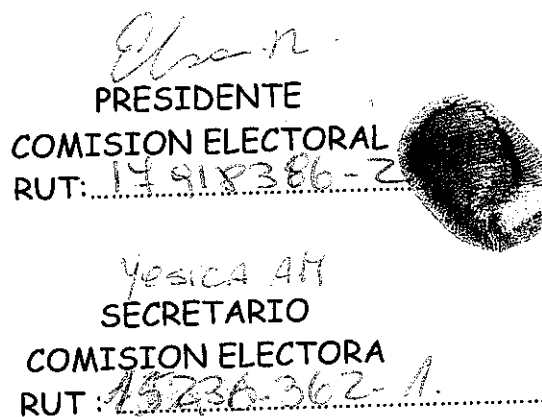 Elsa n.
PRESIDENTE
COMISION ELECTORAL
RUT: 17918386-2
Yesica AM
SECRETARIO
COMISION ELECTORA
RUT : 15236.362-1.